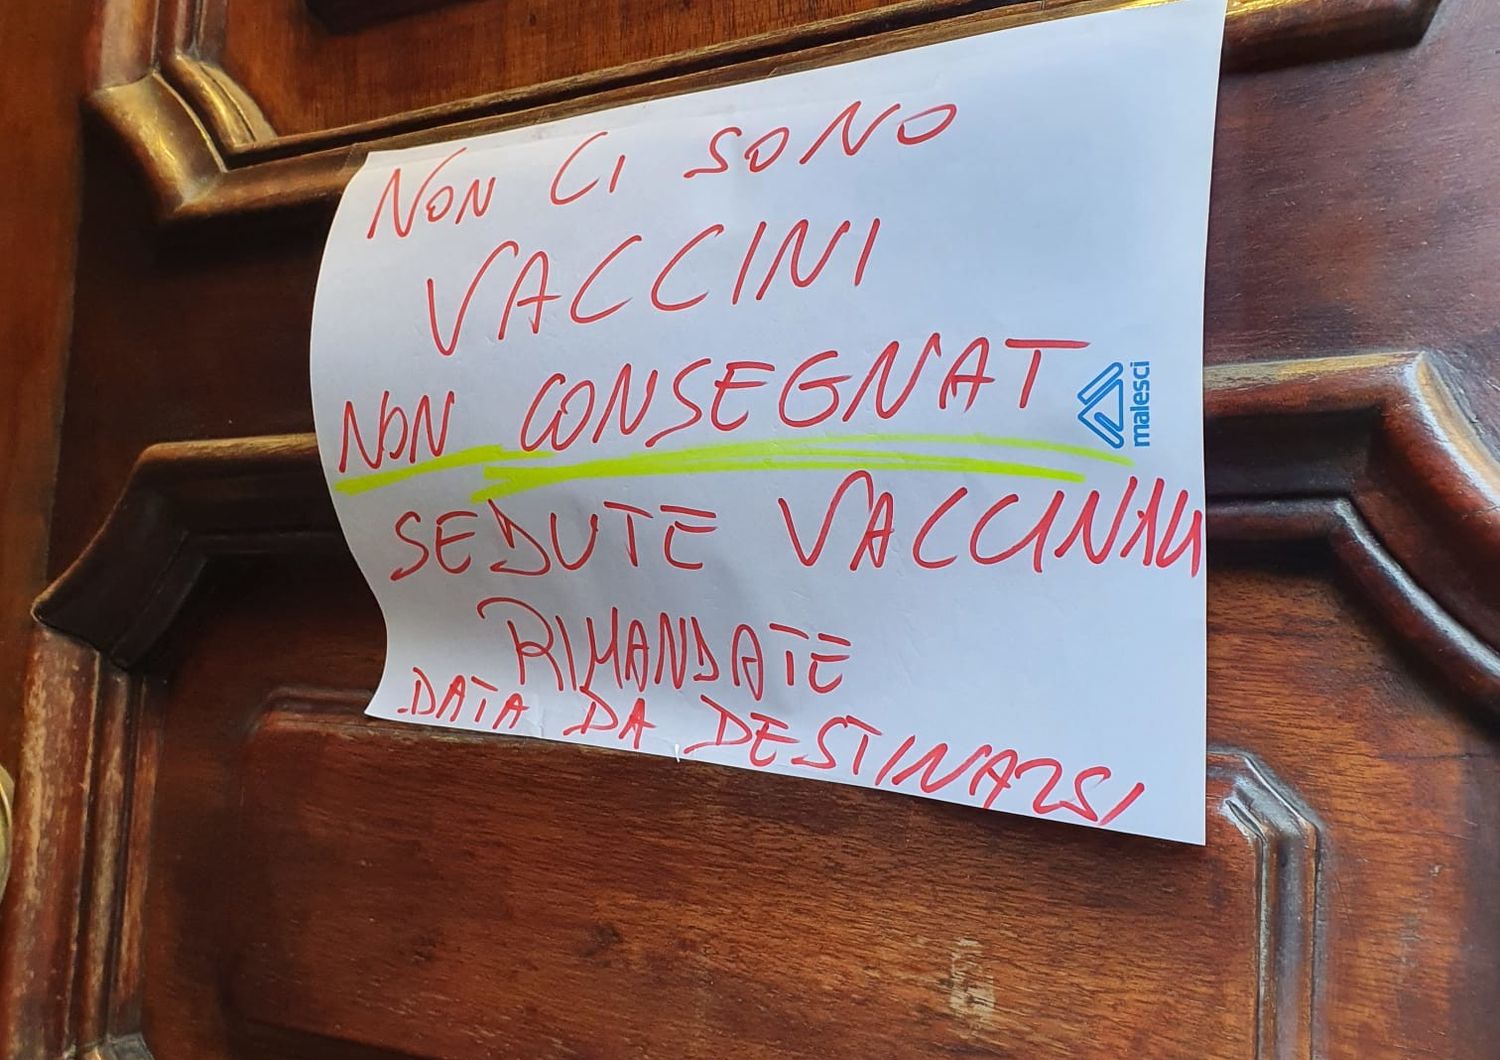 NON CI SONO
VACCINI
NON CONSEGNAT
malesci
SEDUTE VACCINALI
RIMANDATE
.DATA DA DESTINARSI